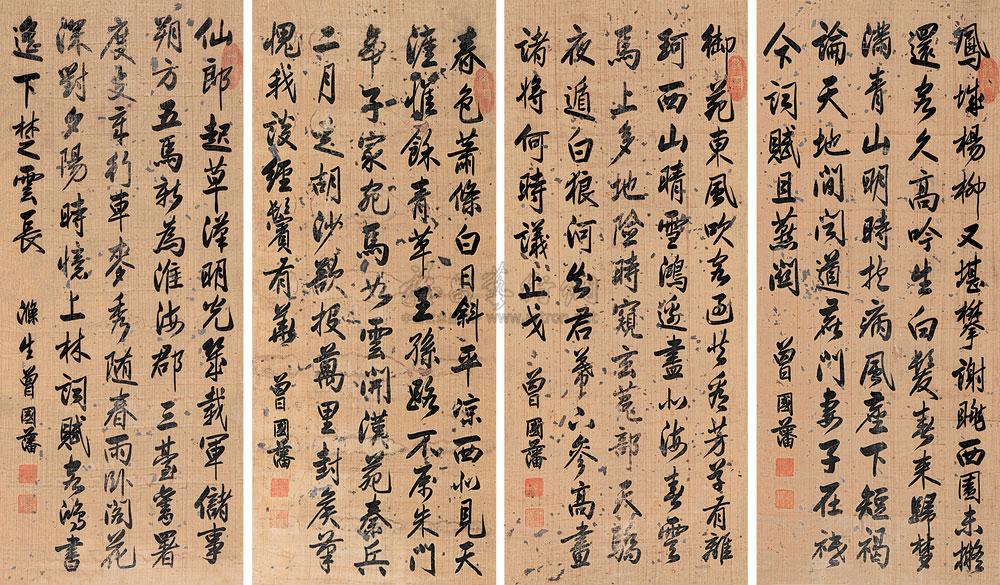 鳳城楊柳又堪攀謝朓西園未擬
還客久高吟生白髮春来歸夢
滿青山明時抱病風塵下短褐
論天地間闻道鹿門妻子在祗
今詞賦且燕闗
曾國藩
御苑東風吹客過共看芳草有離
珂西山晴雪鴻邊盡北海春雲
馬上多地險時窺玄菟部天驕
夜遁白狼河知君幕下參高畫
諸將何時議止戈
曾國藩
春色蕭條白日斜平涼西北見天
涯惟餘青草王孫路不屬朱門
帝子家宛馬如雲開漢苑秦兵
二月走胡沙欲投萬里封侯筆
愧我談經鬢有華
曾國藩
仙郎起草漢明光幾載軍儲事
朔方五馬新為淮海郡三臺舊署
度支章行車麥秀随春雨卧閤花
深對夕陽時憶上林詞賦客鴻書
遥下楚雲長
滌生曾國藩